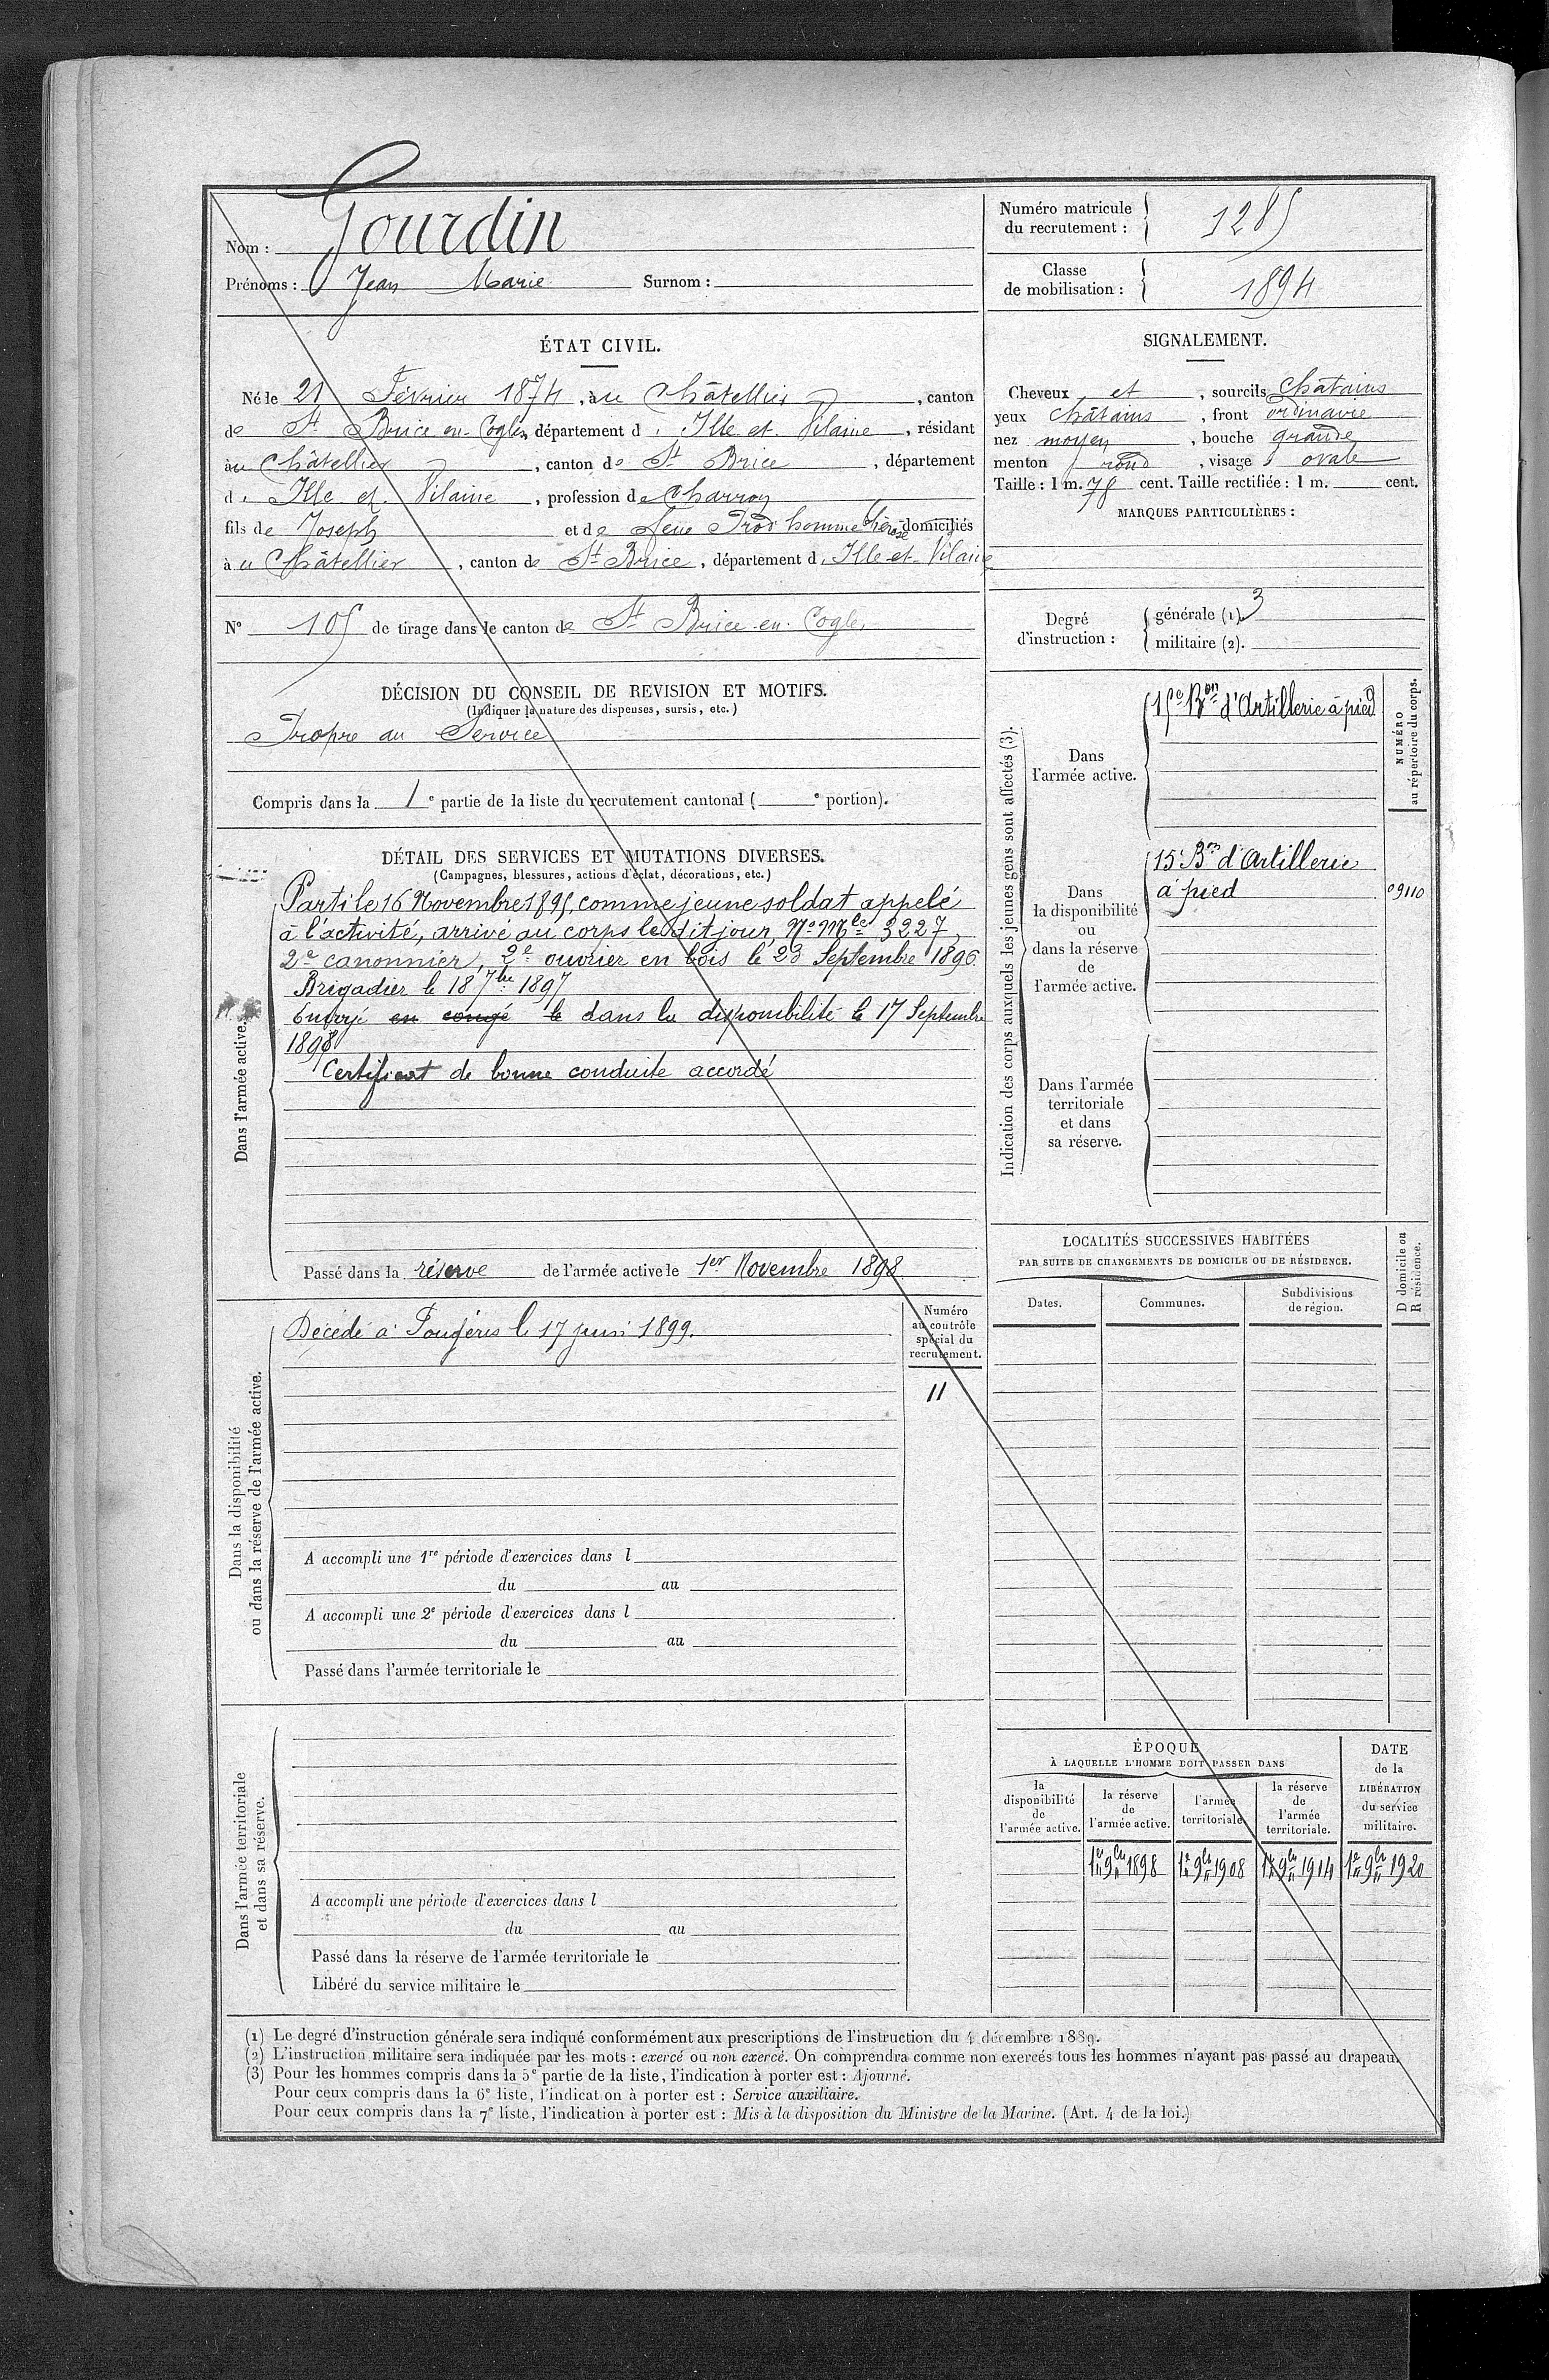 Nom : Gourdin
Prénoms : Jean Marie Surnom :
Numéro matricule du recrutement : 1285
Classe de mobilisation : 1894
ÉTAT CIVIL.
Né le 21 Février 1874, à u Châtellier, canton
de St Brice en Cogles, département d'Ille et Vilaine, résidant
à u Châtellier, canton de St Brice, département
d'Ille et Vilaine, profession de Charron
fils de Joseph et de feue Prod'homme Thérèse domiciliés
à u Châtellier, canton de St Brice, département d'Ille-et-Vilaine
N° 105 de tirage dans le canton de St Brice en Cogles
DÉCISION DU CONSEIL DE REVISION ET MOTIFS.
(Indiquer la nature des dispenses, sursis, etc.)
Propre au Service
Compris dans la 1e partie de la liste du recrutement cantonal ( e portion).
SIGNALEMENT.
Cheveux et, sourcils châtains
yeux châtains, front ordinaire
nez moyen, bouche grande
menton rond, visage ovale
Taille : 1 m. 78 cent. Taille rectifiée : 1 m. cent.
MARQUES PARTICULIÈRES :
Degré d'instruction :
générale (1). 3
militaire (2).
DÉTAIL DES SERVICES ET MUTATIONS DIVERSES.
(Campagnes, blessures, actions d'éclat, décorations, etc.)
Dans l'armée active.
Parti le 16 Novembre 1895, comme jeune soldat appelé
à l'activité, arrivé au corps le dit jour, No Mle 3227,
2e canonnier, 2e ouvrier en bois le 23 Septembre 1896
Brigadier le 18 7bre 1897
Envoyé en congé le dans la disponibilité le 17 Septembre
1898
Certificat de bonne conduite accordé
Passé dans la réserve de l'armée active le 1er Novembre 1898
Indication des corps auxquels les jeunes gens sont affectés (3).
NUMÉRO au répertoire du corps.
Dans
l'armée active.
15e Bon d'Artillerie à pied
Dans
la disponibilité
ou
dans la réserve
de
l'armée active.
15e Bon d'Artillerie
à pied
09110
Dans l'armée
territoriale
et dans
sa réserve.
Dans la disponibilité
ou dans la réserve de l'armée active.
Décédé à Fougères le 17 juin 1899.
Numéro
au contrôle
spécial du
recrutement.
11
A accompli une 1re période d'exercices dans l
du au
A accompli une 2e période d'exercices dans l
du au
Passé dans l'armée territoriale le
LOCALITÉS SUCCESSIVES HABITÉES
PAR SUITE DE CHANGEMENTS DE DOMICILE OU DE RÉSIDENCE.
Dates. Communes. Subdivisions de région.
D domicile ou
R résidence.
Dans l'armée territoriale
et dans sa réserve.
A accompli une période d'exercices dans l
du au
Passé dans la réserve de l'armée territoriale le
Libéré du service militaire le
ÉPOQUE
À LAQUELLE L'HOMME DOIT PASSER DANS
la disponibilité de l'armée active.
la réserve de l'armée active.
l'armée territoriale.
la réserve de l'armée territoriale.
DATE de la LIBÉRATION du service militaire.
1er 9bre 1898 1er 9bre 1908 1er 9bre 1914 1er 9bre 1920
(1) Le degré d'instruction générale sera indiqué conformément aux prescriptions de l'instruction du 4 décembre 1889.
(2) L'instruction militaire sera indiquée par les mots : exercé ou non exercé. On comprendra comme non exercés tous les hommes n'ayant pas passé au drapeau.
(3) Pour les hommes compris dans la 5e partie de la liste, l'indication à porter est : Ajourné.
Pour ceux compris dans la 6e liste, l'indication à porter est : Service auxiliaire.
Pour ceux compris dans la 7e liste, l'indication à porter est : Mis à la disposition du Ministre de la Marine. (Art. 4 de la loi.)